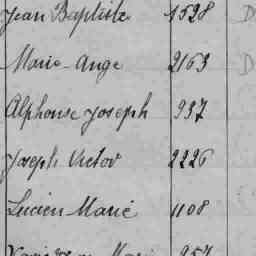 Jean Baptiste 1528 D
Marie-Ange 2163 D
Alphonse Joseph 937
Joseph Victor 2226
Lucien-Marie 1108
957